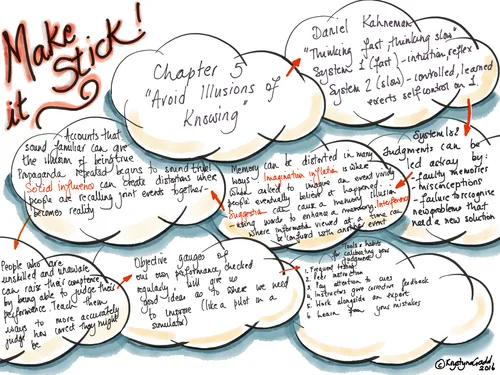 Make
it Stick!
Chapter 5
"Avoid Illusions of
Knowing"
Daniel Kahneman
"Thinking fast, thinking slow"
System 1 (fast) - intuition, reflex
System 2 (slow) - controlled, learned
exerts self control on 1.
Systems 1&2
Judgments can be
led astray by:
- faulty memories
- misconceptions
- failure to recognise
new problems that
need a new solution
Memory can be distorted in many
ways. Imagination inflation is where
when asked to imagine an event vividly
people eventually believe it happened.
Suggestion can cause a memory illusion
- using words to enhance a memory. Interference
where information viewed at a time can
be confused with another event
Accounts that
sound familiar can give
the illusion of being true
Propaganda repeated begins to sound true!
Social influence can create distortions where
people are recalling print events together -
becomes reality
People who are
unskilled and unaware
can raise their competence
by being able to judge their
performance. Teach them
ways to more accurately
judge how correct they might
be
Objective gauges of
our own performance, checked
regularly, will give us
good ideas as to where we need
to improve (like a pilot in a
simulator)
Tools & habits
for calibrating your
judgment
1. Frequent testing
2. Peer instruction
3. Pay attention to cues
4. Instructors give corrective feedback
5. Work alongside an expert
6. Learn from your mistakes
© KrystynaGadd
2016